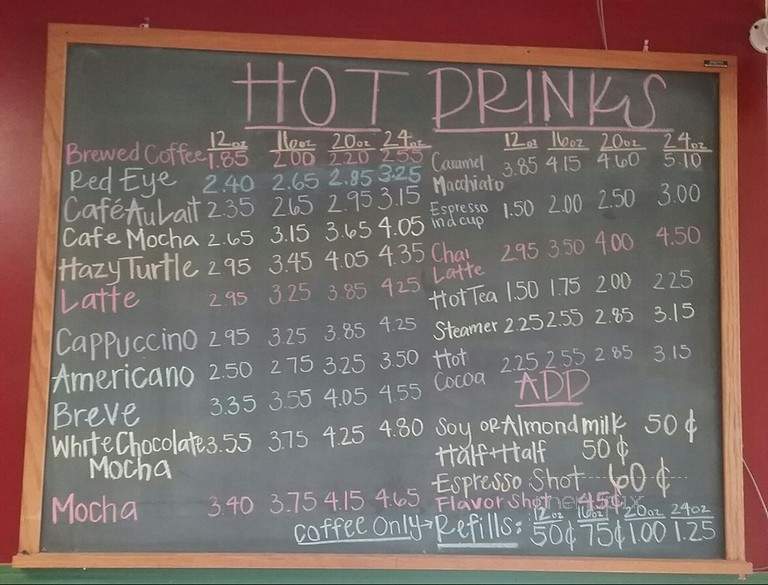 HOT DRINKS
12oz 16oz 20oz 24oz
Brewed Coffee 1.85 2.00 2.20 2.55
Red Eye 2.40 2.65 2.85 3.25
Café Au Lait 2.35 2.65 2.95 3.15
Cafe Mocha 2.65 3.15 3.65 4.05
Hazy Turtle 2.95 3.45 4.05 4.35
Latte 2.95 3.25 3.85 4.25
Cappuccino 2.95 3.25 3.85 4.25
Americano 2.50 2.75 3.25 3.50
Breve 3.35 3.55 4.05 4.55
White Chocolate 3.55 3.75 4.25 4.80
Mocha
Mocha 3.40 3.75 4.15 4.65
12oz 16oz 20oz 24oz
Caramel 3.85 4.15 4.60 5.10
Macchiato
Espresso 1.50 2.00 2.50 3.00
in a cup
Chai 2.95 3.50 4.00 4.50
Latte
Hot Tea 1.50 1.75 2.00 2.25
Steamer 2.25 2.55 2.85 3.15
Hot 2.25 2.55 2.85 3.15
Cocoa
ADD
Soy or Almond milk 50¢
Half+Half 50¢
Espresso Shot 60¢
Flavor Shot 45¢
12oz 16oz 20oz 24oz
Coffee Only→Refills: 50¢ 75¢ 1.00 1.25